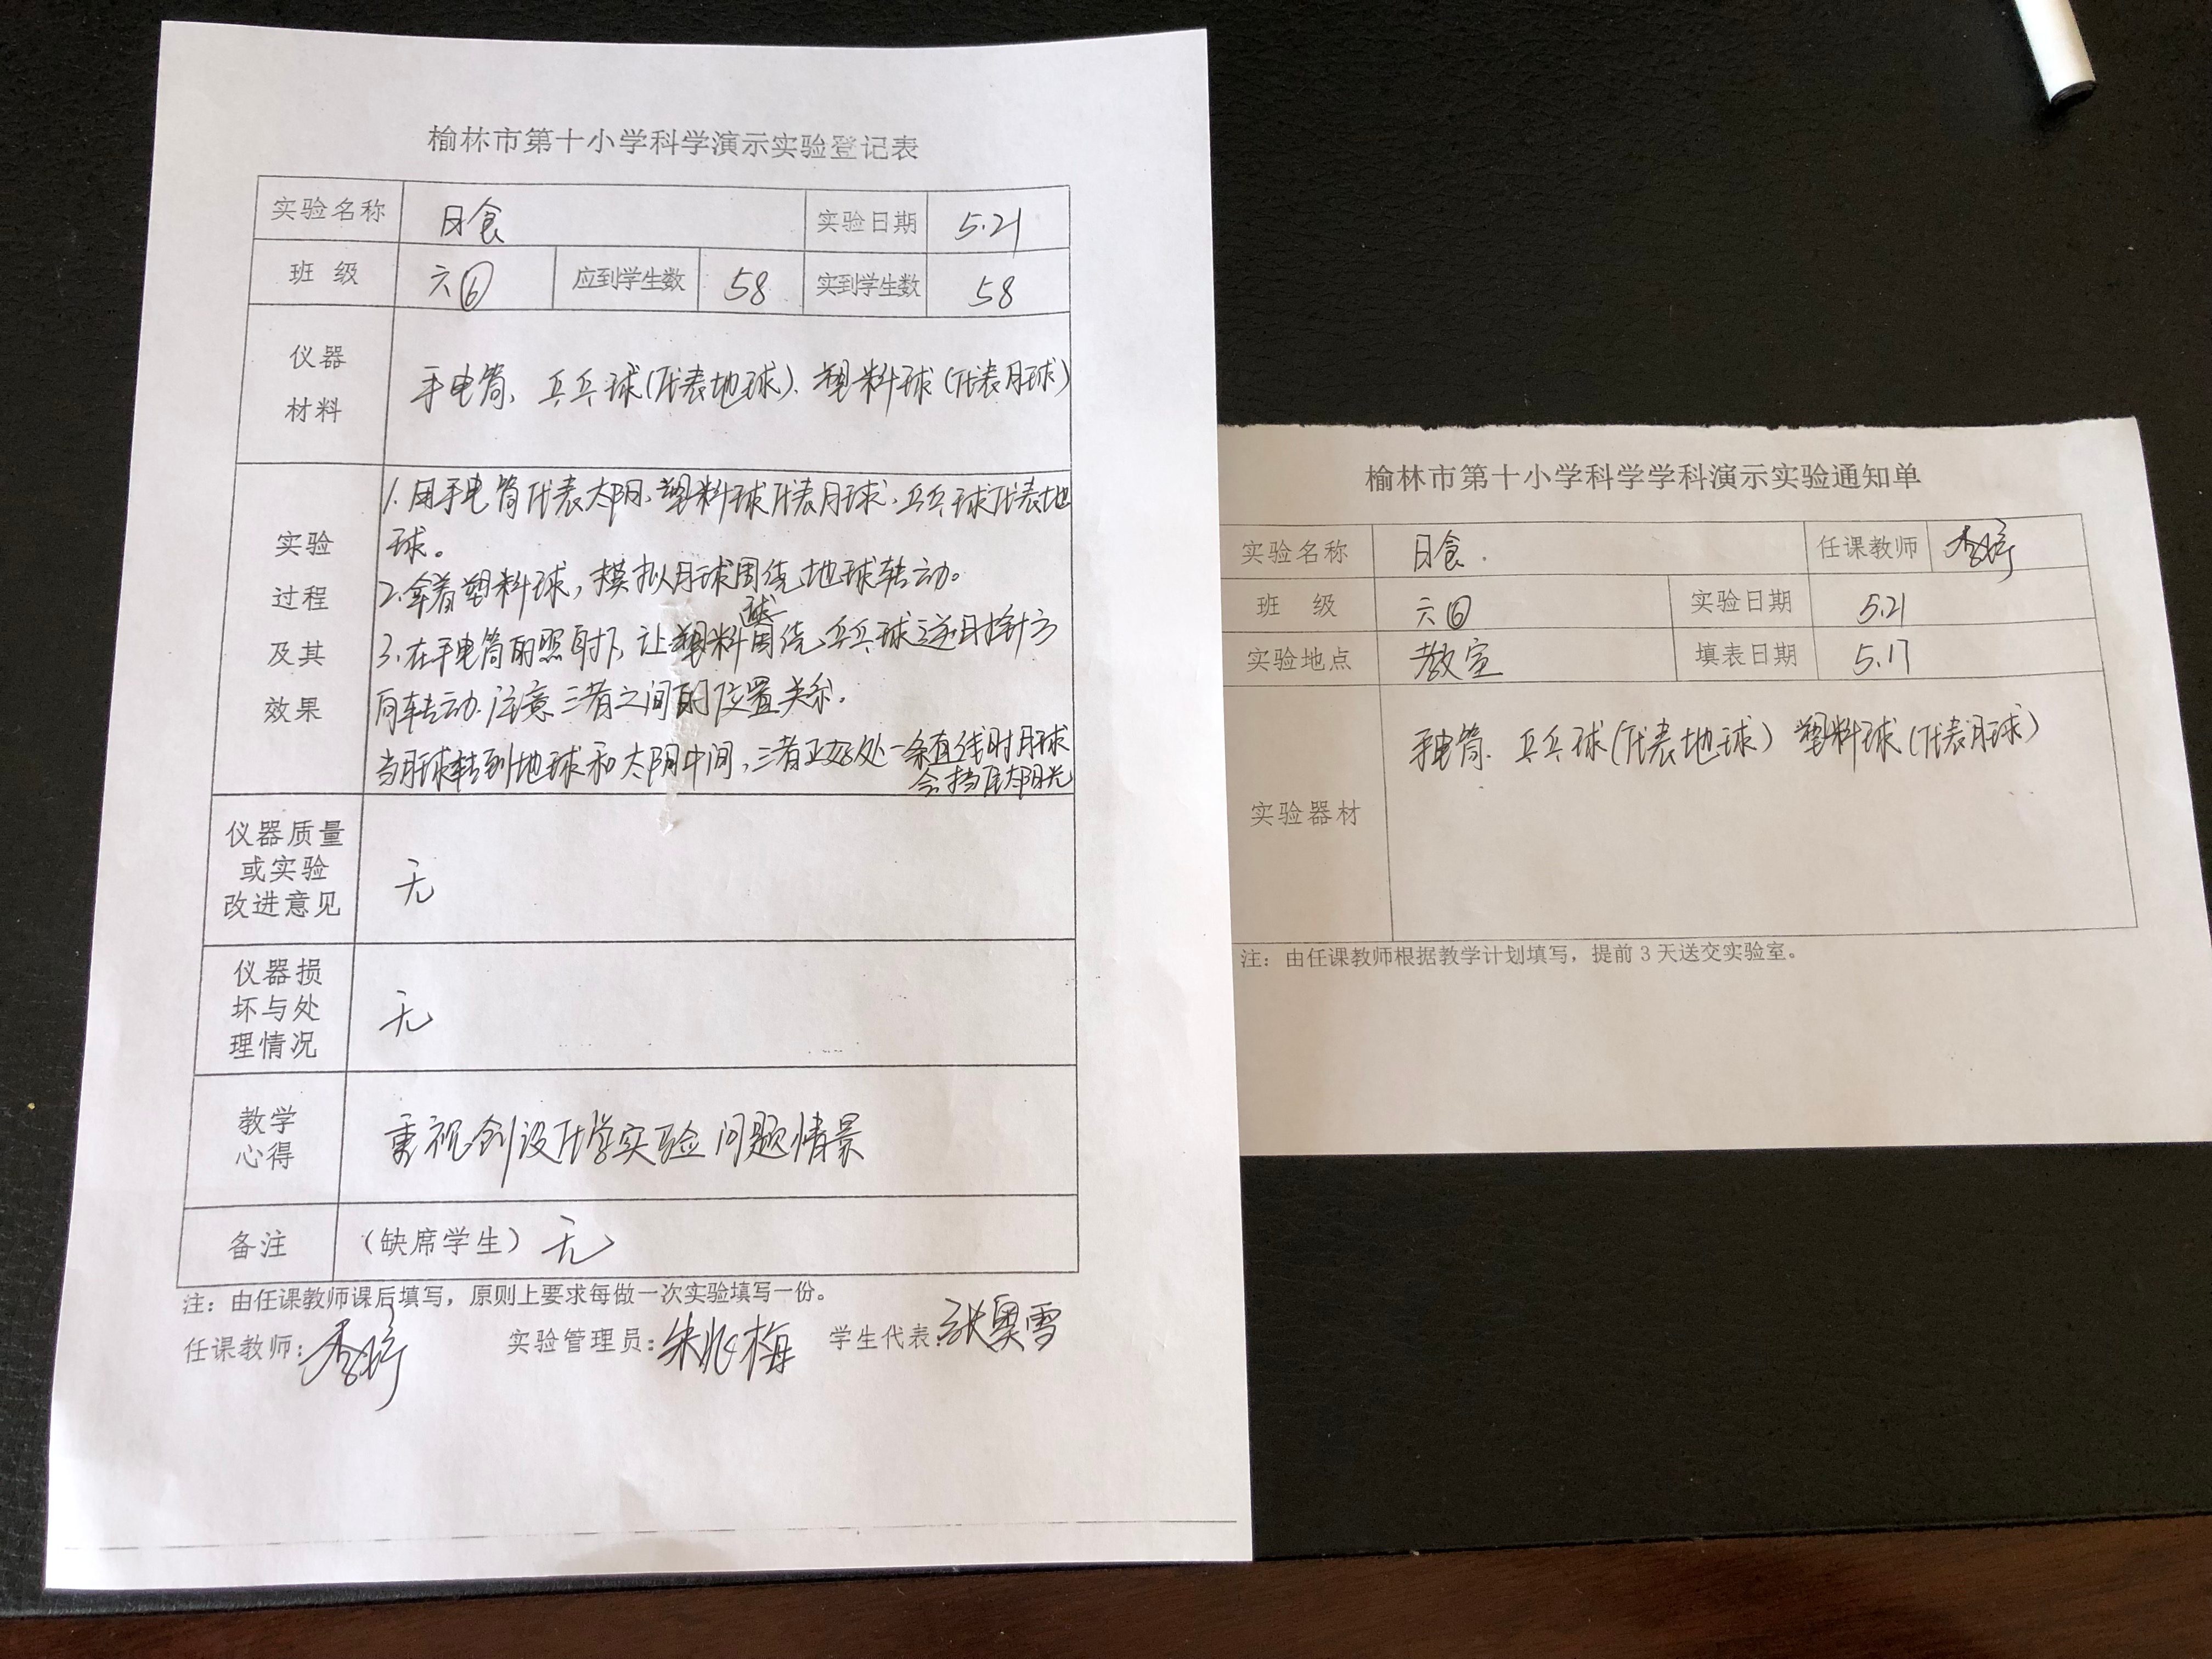 榆林市第十小学科学演示实验登记表
实验名称 日食 实验日期 5.21
班 级 六⑥ 应到学生数 58 实到学生数 58
仪器
材料
手电筒、乒乓球(代表地球)、塑料球(代表月球)
实验
过程
及其
效果
1.用手电筒代表太阳、塑料球代表月球、乒乓球代表地
球。
2.拿着塑料球,模拟月球围绕地球转动。
3.在手电筒的照射下,让塑料球围绕乒乓球逆时针方
向转动.注意三者之间的位置关系.
当月球转到地球和太阳中间,三者正好处一条直线时月球
会挡住太阳光
仪器质量
或实验
改进意见
无
仪器损
坏与处
理情况
无
教学
心得
重视创设化学实验问题情景
备注 (缺席学生) 无
注:由任课教师课后填写,原则上要求每做一次实验填写一份。
任课教师: 实验管理员: 学生代表:张奥雪
榆林市第十小学科学学科演示实验通知单
实验名称 日食. 任课教师
班 级 六⑥ 实验日期 5.21
实验地点 教室 填表日期 5.17
实验器材
手电筒、乒乓球(代表地球) 塑料球(代表月球)
注:由任课教师根据教学计划填写,提前3天送交实验室。